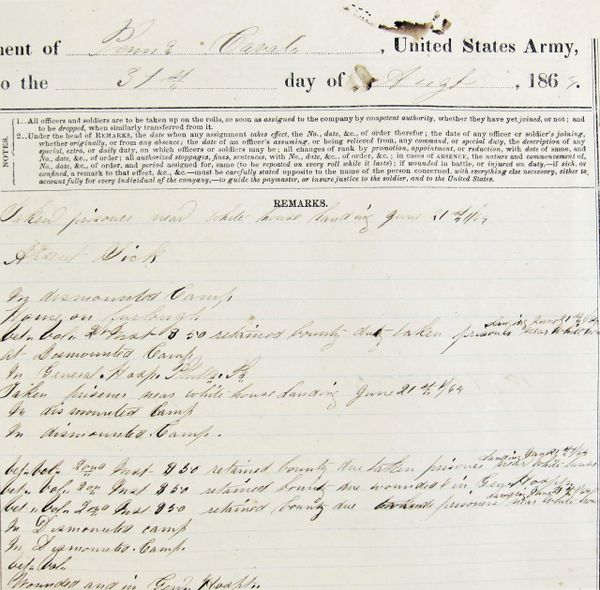 ment of Penna Caval. , United States Army,
to the 31st day of Augt , 186 .
NOTES.
1..All officers and soldiers are to be taken up on the rolls, so soon as assigned to the company by competent authority, whether they have yet joined, or not; and
to be dropped, when similarly transferred from it.
2..Under the head of REMARKS, the date when any assignment takes effect, the No., date, &c., of order therefor; the date of any officer or soldier's joining,
whether originally, or from any absence; the date of an officer's assuming, or being relieved from, any command, or special duty, the description of any
special, extra, or daily duty, on which officers or soldiers may be; all changes of rank by promotion, appointment, or reduction, with date of same, and
No., date, &c., of order; all authorized stoppages, fines, sentences, with No., date, &c., of order, &c.; in cases of ABSENCE, the nature and commencement of,
No., date, &c., of order, and period assigned for, same (to be repeated on every roll while it lasts); if wounded in battle, or injured on duty,—if sick, or
confined, a remark to that effect, &c., &c.—must be carefully stated opposite to the name of the person concerned, with everything else necessary, either to
account fully for every individual of the company,—to guide the paymaster, or insure justice to the soldier, and to the United States.
REMARKS.
Taken prisoner near white house Landing June 21st/64
Absent Sick
In dismounted Camp
on furlough
vet. vol. Inst $50 retained bounty due taken prisoner near White house landing June 21st/64
at Dismounted Camp
In General Hosp. Phila. Pa
Taken prisoner near white house Landing June 21st/64
In dismounted Camp
In dismounted Camp.
vet. vol. 2nd Inst $50 retained bounty due taken prisoner near White house landing June 21st/64
vet. vol. 2nd Inst $50 retained bounty due wounded in Gen. Hosp.
vet. vol. 2nd Inst $50 retained bounty due prisoner near White house landing June 21st/64
In Dismounted camp
In Dismounted Camp.
vet. vol.
Wounded and in Genl. Hospl.